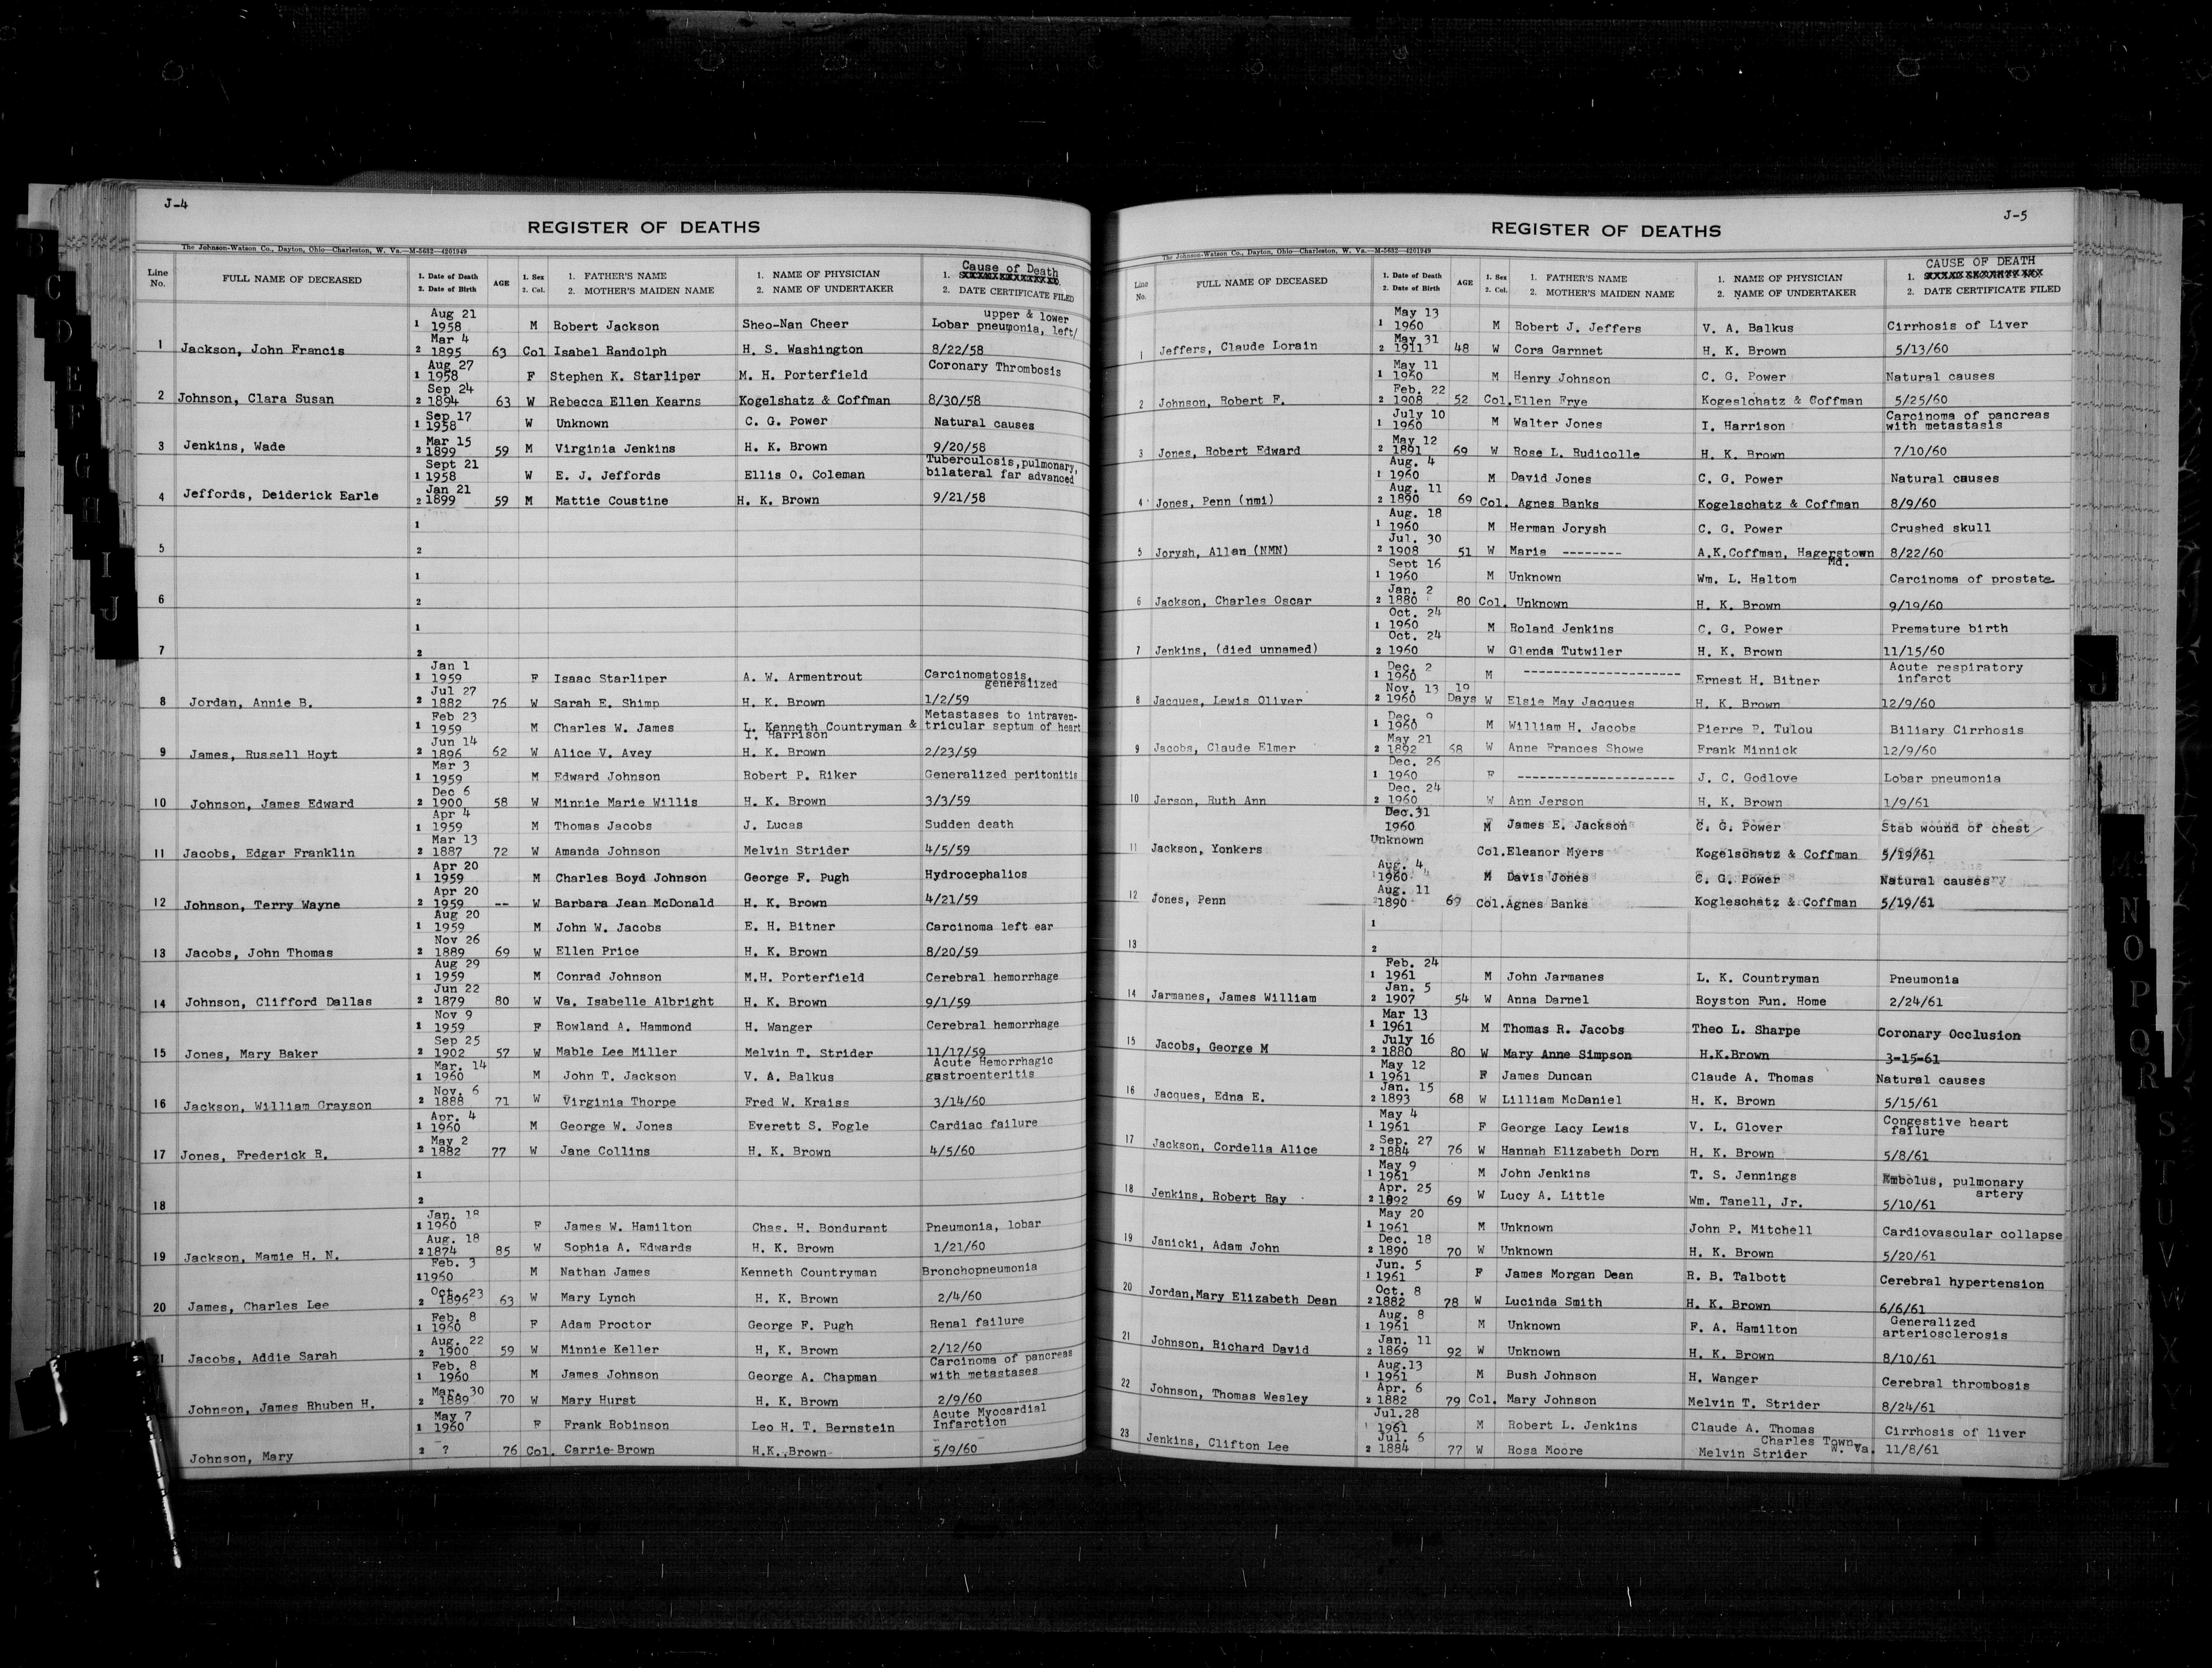 J-4
REGISTER OF DEATHS
The Johnson-Watson Co., Dayton, Ohio—Charleston, W. Va.—M-5682—4201949
Line No. | FULL NAME OF DECEASED | 1. Date of Death 2. Date of Birth | AGE | 1. Sex 2. Col. | 1. FATHER'S NAME 2. MOTHER'S MAIDEN NAME | 1. NAME OF PHYSICIAN 2. NAME OF UNDERTAKER | 1. Cause of Death 2. DATE CERTIFICATE FILED
1 Aug 21 1958 M Robert Jackson Sheo-Nan Cheer upper & lower Lobar pneumonia, left/
1 Jackson, John Francis 2 Mar 4 1895 63 Col Isabel Randolph H. S. Washington 8/22/58
1 Aug 27 1958 F Stephen K. Starliper M. H. Porterfield Coronary Thrombosis
2 Johnson, Clara Susan 2 Sep 24 1894 63 W Rebecca Ellen Kearns Kogelshatz & Coffman 8/30/58
1 Sep 17 1958 W Unknown C. G. Power Natural causes
3 Jenkins, Wade 2 Mar 15 1899 59 M Virginia Jenkins H. K. Brown 9/20/58
1 Sept 21 1958 W E. J. Jeffords Ellis O. Coleman Tuberculosis, pulmonary, bilateral far advanced
4 Jeffords, Deiderick Earle 2 Jan 21 1899 59 M Mattie Coustine H. K. Brown 9/21/58
1
5 2
1
6 2
1
7 2
1 Jan 1 1959 F Isaac Starliper A. W. Armentrout Carcinomatosis, generalized
8 Jordan, Annie B. 2 Jul 27 1882 76 W Sarah E. Shimp H. K. Brown 1/2/59
1 Feb 23 1959 M Charles W. James L. Kenneth Countryman & I. Harrison Metastases to intraven-tricular septum of heart
9 James, Russell Hoyt 2 Jun 14 1896 62 W Alice V. Avey H. K. Brown 2/23/59
1 Mar 3 1959 M Edward Johnson Robert P. Riker Generalized peritonitis
10 Johnson, James Edward 2 Dec 6 1900 58 W Minnie Marie Willis H. K. Brown 3/3/59
1 Apr 4 1959 M Thomas Jacobs J. Lucas Sudden death
11 Jacobs, Edgar Franklin 2 Mar 13 1887 72 W Amanda Johnson Melvin Strider 4/5/59
1 Apr 20 1959 M Charles Boyd Johnson George F. Pugh Hydrocephalios
12 Johnson, Terry Wayne 2 Apr 20 1959 -- W Barbara Jean McDonald H. K. Brown 4/21/59
1 Aug 20 1959 M John W. Jacobs E. H. Bitner Carcinoma left ear
13 Jacobs, John Thomas 2 Nov 26 1889 69 W Ellen Price H. K. Brown 8/20/59
1 Aug 29 1959 M Conrad Johnson M.H. Porterfield Cerebral hemorrhage
14 Johnson, Clifford Dallas 2 Jun 22 1879 80 W Va. Isabelle Albright H. K. Brown 9/1/59
1 Nov 9 1959 F Rowland A. Hammond H. Wanger Cerebral hemorrhage
15 Jones, Mary Baker 2 Sep 25 1902 57 W Mable Lee Miller Melvin T. Strider 11/17/59
1 Mar. 14 1960 M John T. Jackson V. A. Balkus Acute Hemorrhagic gastroenteritis
16 Jackson, William Grayson 2 Nov. 6 1888 71 W Virginia Thorpe Fred W. Kraiss 3/14/60
1 Apr. 4 1960 M George W. Jones Everett S. Fogle Cardiac failure
17 Jones, Frederick R. 2 May 2 1882 77 W Jane Collins H. K. Brown 4/5/60
1
18 2
1 Jan. 18 1960 F James W. Hamilton Chas. H. Bondurant Pneumonia, lobar
19 Jackson, Mamie H. N. 2 Aug. 18 1874 85 W Sophia A. Edwards H. K. Brown 1/21/60
1 Feb. 3 1960 M Nathan James Kenneth Countryman Bronchopneumonia
20 James, Charles Lee 2 Oct. 23 1896 63 W Mary Lynch H. K. Brown 2/4/60
1 Feb. 8 1960 F Adam Proctor George F. Pugh Renal failure
21 Jacobs, Addie Sarah 2 Aug. 22 1900 59 W Minnie Keller H, K. Brown 2/12/60
1 Feb. 8 1960 M James Johnson George A. Chapman Carcinoma of pancreas with metastases
Johnson, James Rhuben H. 2 Mar. 30 1889 70 W Mary Hurst H. K. Brown 2/9/60
1 May 7 1960 F Frank Robinson Leo H. T. Bernstein Acute Myocardial Infarction
Johnson, Mary 2 ? 76 Col. Carrie Brown H.K. Brown 5/9/60
J-5
REGISTER OF DEATHS
The Johnson-Watson Co., Dayton, Ohio—Charleston, W. Va.—M-5682—4201949
Line No. | FULL NAME OF DECEASED | 1. Date of Death 2. Date of Birth | AGE | 1. Sex 2. Col. | 1. FATHER'S NAME 2. MOTHER'S MAIDEN NAME | 1. NAME OF PHYSICIAN 2. NAME OF UNDERTAKER | 1. CAUSE OF DEATH 2. DATE CERTIFICATE FILED
1 May 13 1960 M Robert J. Jeffers V. A. Balkus Cirrhosis of Liver
1 Jeffers, Claude Lorain 2 May 31 1911 48 W Cora Garnnet H. K. Brown 5/13/60
1 May 11 1960 M Henry Johnson C. G. Power Natural causes
2 Johnson, Robert F. 2 Feb. 22 1908 52 Col. Ellen Frye Kogeslchatz & Coffman 5/25/60
1 July 10 1960 M Walter Jones I. Harrison Carcinoma of pancreas with metastasis
3 Jones, Robert Edward 2 May 12 1891 69 W Rose L. Rudicolle H. K. Brown 7/10/60
1 Aug. 4 1960 M David Jones C. G. Power Natural causes
4 Jones, Penn (nmi) 2 Aug. 11 1890 69 Col. Agnes Banks Kogelschatz & Coffman 8/9/60
1 Aug. 18 1960 M Herman Jorysh C. G. Power Crushed skull
5 Jorysh, Allan (NMN) 2 Jul. 30 1908 51 W Maria -------- A.K.Coffman, Hagerstown Md. 8/22/60
1 Sept 16 1960 M Unknown Wm. L. Haltom Carcinoma of prostate
6 Jackson, Charles Oscar 2 Jan. 2 1880 80 Col. Unknown H. K. Brown 9/19/60
1 Oct. 24 1960 M Roland Jenkins C. G. Power Premature birth
7 Jenkins, (died unnamed) 2 Oct. 24 1960 W Glenda Tutwiler H. K. Brown 11/15/60
1 Dec. 2 1960 M -------------------- Ernest H. Bitner Acute respiratory infarct
8 Jacques, Lewis Oliver 2 Nov. 13 1960 19 Days W Elsie May Jacques H. K. Brown 12/9/60
1 Dec. 9 1960 M William H. Jacobs Pierre P. Tulou Biliary Cirrhosis
9 Jacobs, Claude Elmer 2 May 21 1892 68 W Anne Frances Showe Frank Minnick 12/9/60
1 Dec. 26 1960 F -------------------- J. C. Godlove Lobar pneumonia
10 Jerson, Ruth Ann 2 Dec. 24 1960 W Ann Jerson H. K. Brown 1/9/61
Dec.31 1960 M James E. Jackson C. G. Power Stab wound of chest
11 Jackson, Yonkers Unknown Col. Eleanor Myers Kogelschatz & Coffman 5/19/61
1 Aug. 4 1960 M Davis Jones C. G. Power Natural causes
12 Jones, Penn 2 Aug. 11 1890 69 Col. Agnes Banks Kogleschatz & Coffman 5/19/61
1
13 2
1 Feb. 24 1961 M John Jarmanes L. K. Countryman Pneumonia
14 Jarmanes, James William 2 Jan. 5 1907 54 W Anna Darnel Royston Fun. Home 2/24/61
1 Mar 13 1961 M Thomas R. Jacobs Theo L. Sharpe Coronary Occlusion
15 Jacobs, George M 2 July 16 1880 80 W Mary Anne Simpson H.K.Brown 3-15-61
1 May 12 1961 F James Duncan Claude A. Thomas Natural causes
16 Jacques, Edna E. 2 Jan. 15 1893 68 W Lilliam McDaniel H. K. Brown 5/15/61
1 May 4 1961 F George Lacy Lewis V. L. Glover Congestive heart failure
17 Jackson, Cordelia Alice 2 Sep. 27 1884 76 W Hannah Elizabeth Dorn H. K. Brown 5/8/61
1 May 9 1961 M John Jenkins T. S. Jennings Embolus, pulmonary artery
18 Jenkins, Robert Ray 2 Apr. 25 1892 69 W Lucy A. Little Wm. Tanell, Jr. 5/10/61
1 May 20 1961 M Unknown John P. Mitchell Cardiovascular collapse
19 Janicki, Adam John 2 Dec. 18 1890 70 W Unknown H. K. Brown 5/20/61
1 Jun. 5 1961 F James Morgan Dean R. B. Talbott Cerebral hypertension
20 Jordan,Mary Elizabeth Dean 2 Oct. 8 1882 78 W Lucinda Smith H. K. Brown 6/6/61
1 Aug. 8 1961 M Unknown F. A. Hamilton Generalized arteriosclerosis
21 Johnson, Richard David 2 Jan. 11 1869 92 W Unknown H. K. Brown 8/10/61
1 Aug.13 1961 M Bush Johnson H. Wanger Cerebral thrombosis
22 Johnson, Thomas Wesley 2 Apr. 6 1882 79 Col. Mary Johnson Melvin T. Strider 8/24/61
1 Jul.28 1961 M Robert L. Jenkins Claude A. Thomas Cirrhosis of liver
23 Jenkins, Clifton Lee 2 Jul. 6 1884 77 W Rosa Moore Melvin Strider Charles Town, W. Va. 11/8/61
B
C
D
E
F
G
H
I
J
J
Mc
N
O
P
Q
R
S
T
U
V
W
X